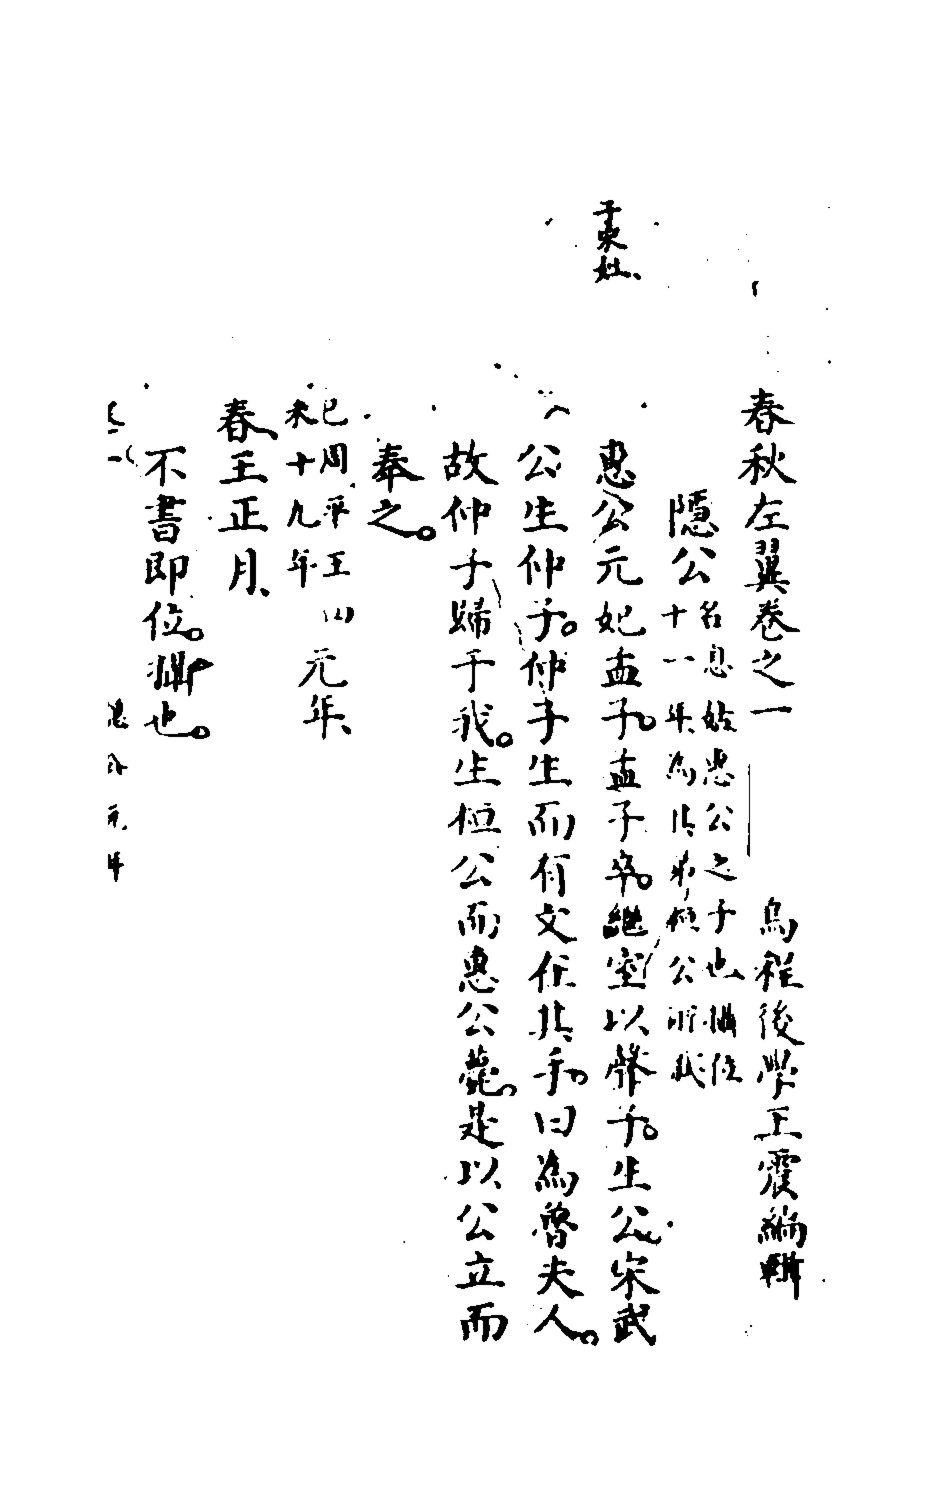 春秋左翼卷之一
烏程後學王震編輯
隱公名息姑惠公之子也攝位
十一年為其弟桓公所弒
子宋姓
惠公元妃孟子。孟子卒。繼室以聲子。生公宋武
公生仲子。仲子生而有文在其手。曰為魯夫人。
故仲子歸于我。生桓公而惠公薨。是以公立而
奉之。
己周平王四
未十九年
元年
春王正月
不書即位。攝也。